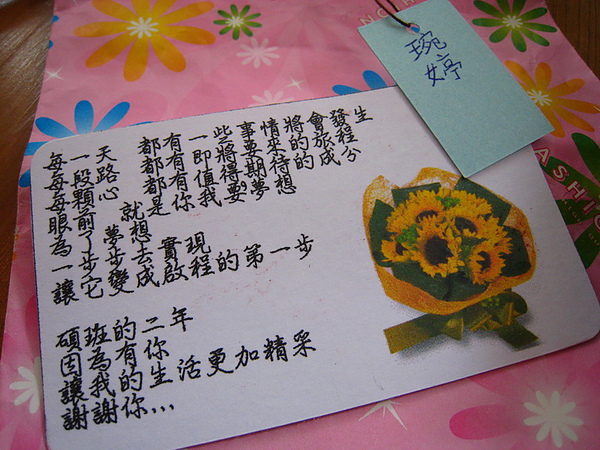 琬婷
每一天 都有一些事情將會發生
每一段路 都有即將要來的旅程
每一顆心 都有值得期待的成分
眼前 就是你我要夢想
為了夢想實現
一步步去
讓它變成啟程的第一步
碩班的二年
因為有你
讓我的生活更加精采
謝謝你,,,
ASHIO